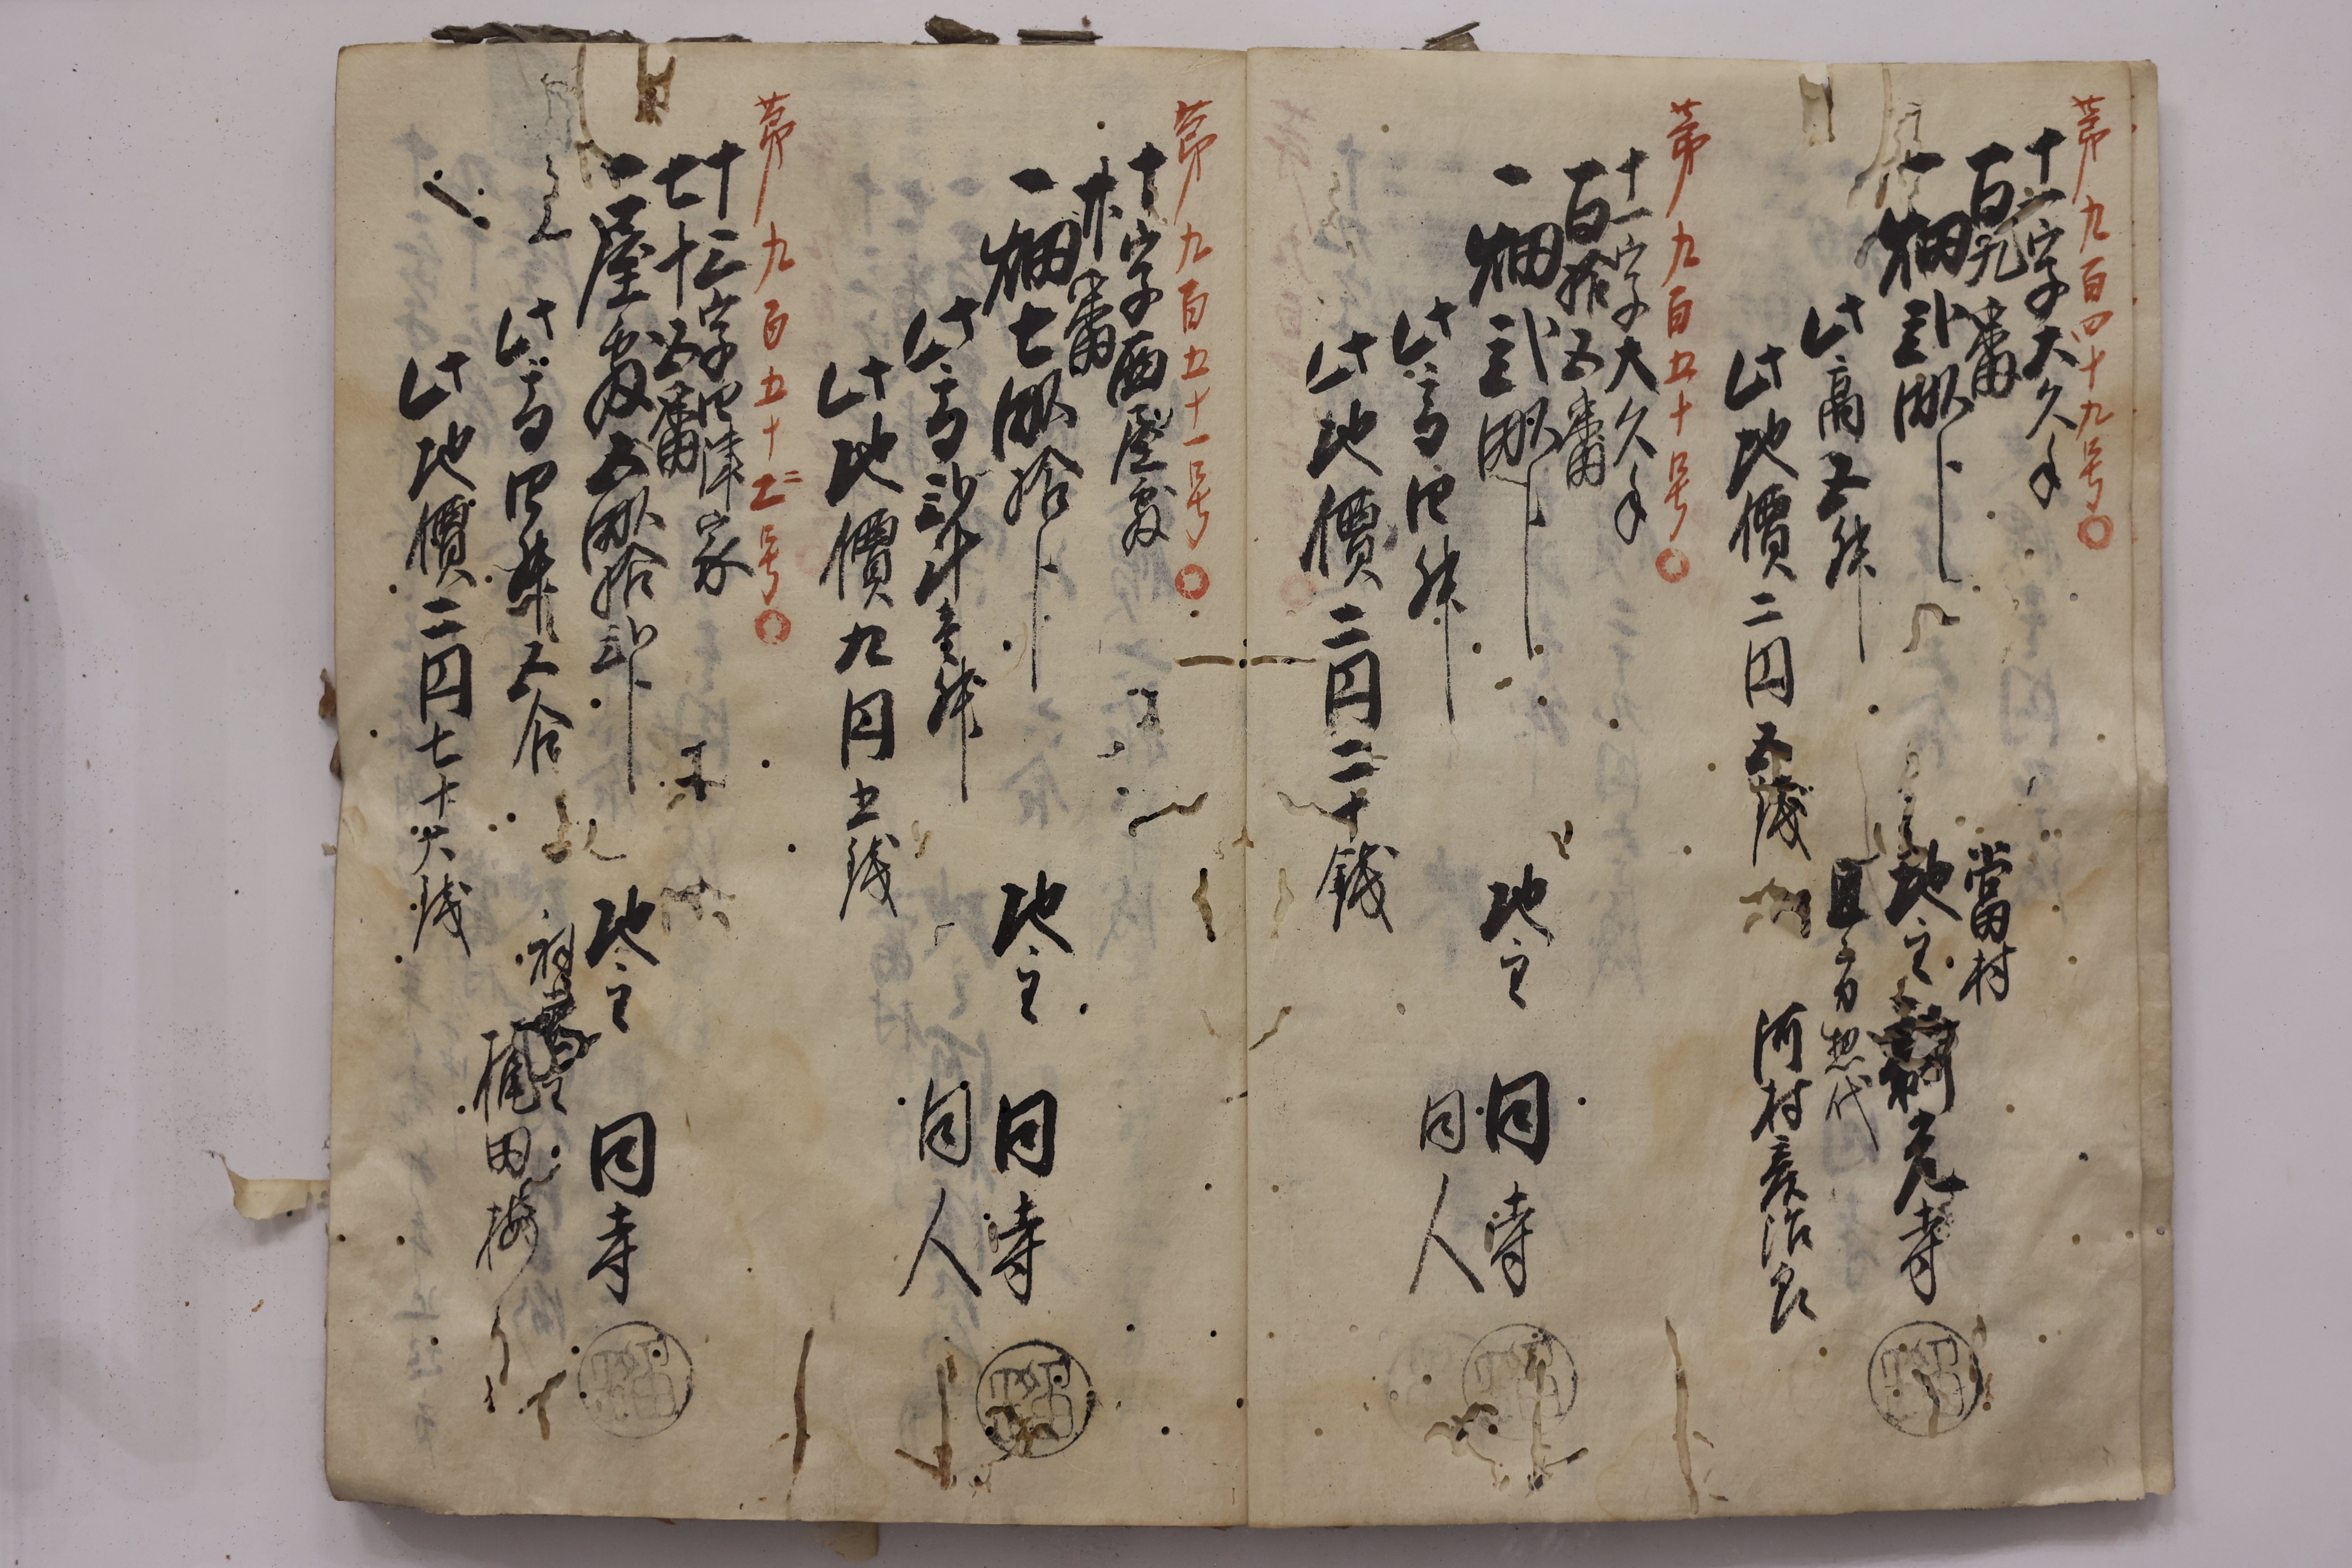 第九百四十九号
十一字大久手
百九番
一畑弐畝卜
此高五升
此地價二円五銭
當村
地主 光寺
惣代
河村 治良
第九百五十号
十一字大久手
百拾五番
一畑弐畝卜
此高四升
此地價二円二十銭
地主 同寺
同人
第九百五十一号
十字西屋敷
番
一畑七畝拾卜
此高弐斗壱升
此地價九円五銭
地主 同寺
同人
第九百五十二号
十三字四津家
七十五番
一屋敷五畝拾卜
此高四升五合
此地價二円七十六銭
地主 同寺
梶田梅